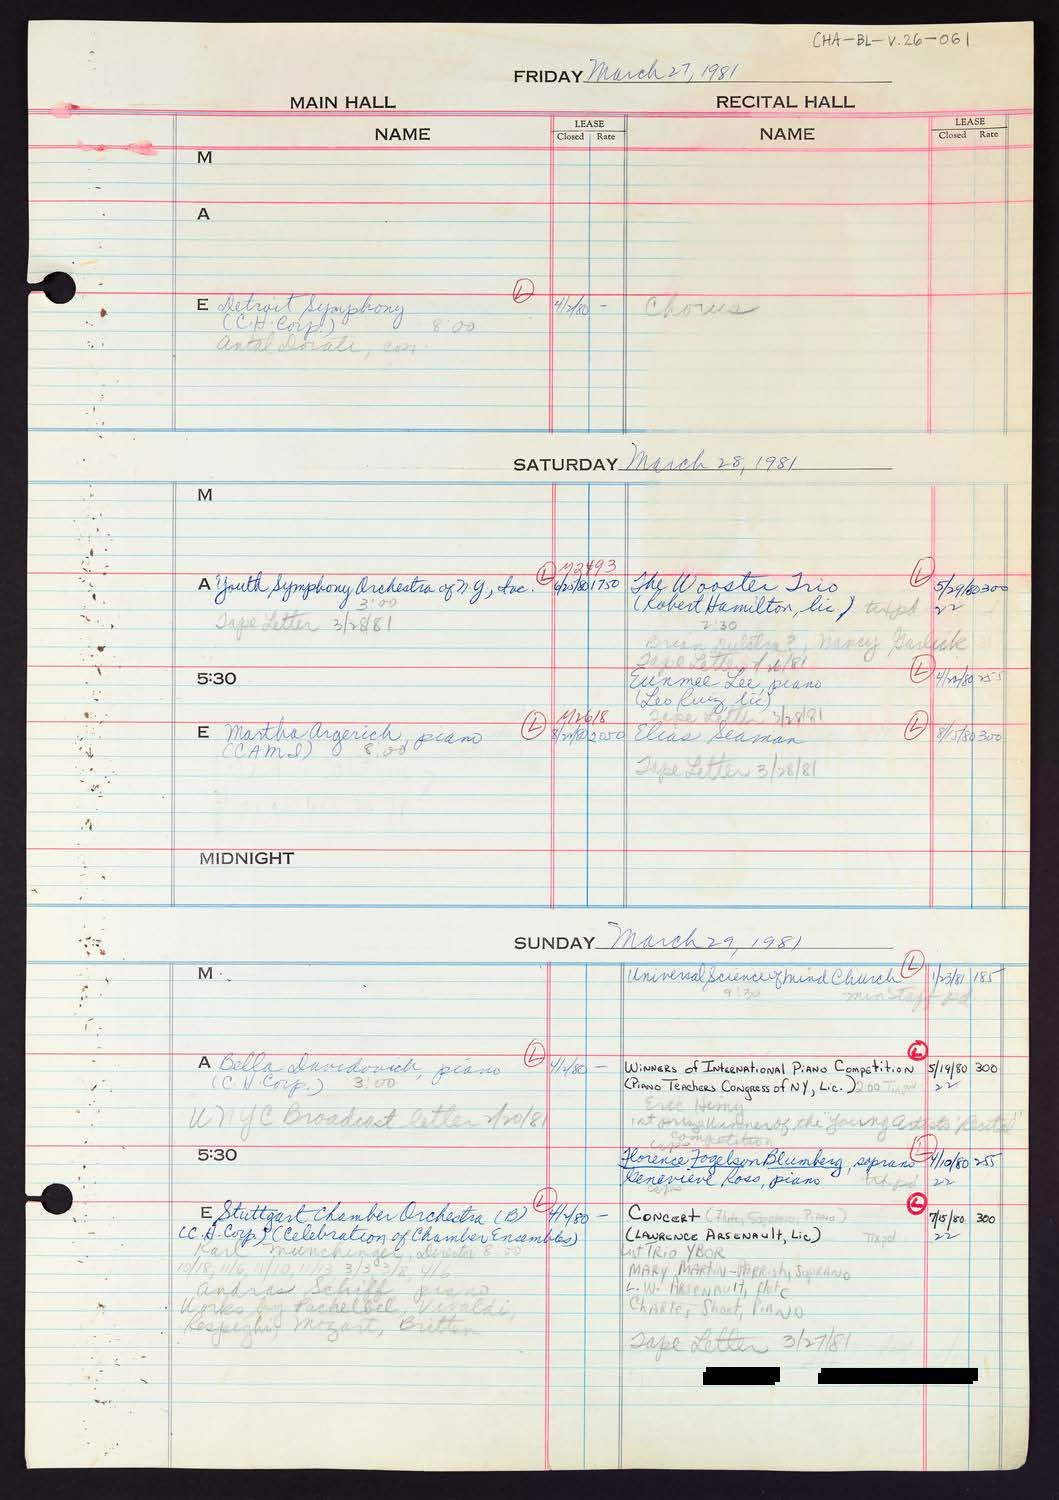 CHA-BL-V.26-061
FRIDAY March 27, 1981
MAIN HALL
RECITAL HALL
NAME
LEASE
Closed Rate
NAME
LEASE
Closed Rate
M
A
L
E Detroit Symphony 4/2/80 - Chorus
(C.H. Corp.) 8:00
Antal Dorati, con.
SATURDAY March 28, 1981
M
M2493
A Youth Symphony Orchestra of NY, Inc. L 6/25/80 1750 The Wooster Trio L 5/29/80 300
3:00 (Robert Hamilton, lic) txt pd 22
Tape Letter 3/28/81 2:30
Nancy Garlick
Tape Letter
5:30 Eunmee Lee, piano L 4/22/80 255
(Leo Ruiz, lic)
M2618 Tape Letter 3/28/81
E Martha Argerich, piano L 8/21/80 2050 Elias Seaman L 8/15/80 300
(CAMI) 8:00
Tape Letter 3/28/81
MIDNIGHT
SUNDAY March 29, 1981
M Universal Science of Mind Church L 1/23/81 185
9:30 min staff pd
A Bella Davidovich, piano L 4/1/80 - Winners of International Piano Competition L 5/19/80 300
(C.H. Corp.) 3:00 (Piano Teachers Congress of NY, Lic.) 2:00 Tix pd 22
WNYC Broadcast letter 2/20/81 Eric Himy
winner of the "Young Artists' Recital"
competition
5:30 Florence Fogelson Blumberg, soprano L 4/10/80 255
Genevieve Ross, piano txt pd 22
E Stuttgart Chamber Orchestra (B) L 4/1/80 - Concert (Flute, Soprano, Piano) L 7/15/80 300
(C.H. Corp) (Celebration of Chamber Ensembles) (Laurence Arsenault, Lic) Tix pd 22
Karl Munchinger, Director 8:00 Trio YBOR
10/18, 11/6, 11/10, 11/13 3/3 3/8, 4/6 Mary Martin-Parrish, Soprano
Andras Schiff, piano L.W. Arsenault, flute
Works by Pachelbel, Vivaldi, Charles Short, Piano
Respeghi, Mozart, Britten
Tape Letter 3/27/81